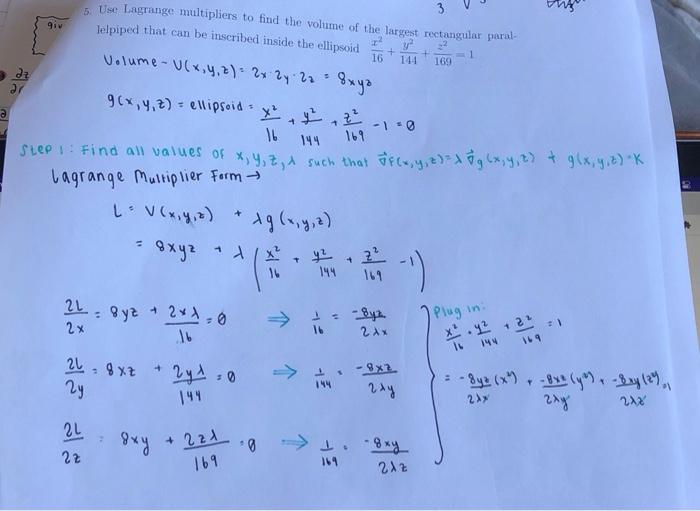 3
5. Use Lagrange multipliers to find the volume of the largest rectangular paral-
lelpiped that can be inscribed inside the ellipsoid x²/16 + y²/144 + z²/169 = 1
giv
∂z
Volume - V(x,y,z) = 2x·2y·2z = 8xyz
g(x,y,z) = ellipsoid = x²/16 + y²/144 + z²/169 - 1 = 0
Step 1: Find all values of x,y,z,λ such that ∇f(x,y,z)=λ∇g(x,y,z) + g(x,y,z)=K
Lagrange Multiplier Form →
L = V(x,y,z) + λg(x,y,z)
= 8xyz + λ(x²/16 + y²/144 + z²/169 - 1)
∂L/∂x = 8yz + 2xλ/16 = 0 ⇒ 1/16 = -8yz/2λx
∂L/∂y = 8xz + 2yλ/144 = 0 ⇒ 1/144 = -8xz/2λy
∂L/∂z = 8xy + 2zλ/169 = 0 ⇒ 1/169 = -8xy/2λz
Plug in:
x²/16 + y²/144 + z²/169 = 1
= -8yz/2λx (x²) + -8xz/2λy (y²) + -8xy/2λz (z²) = 1